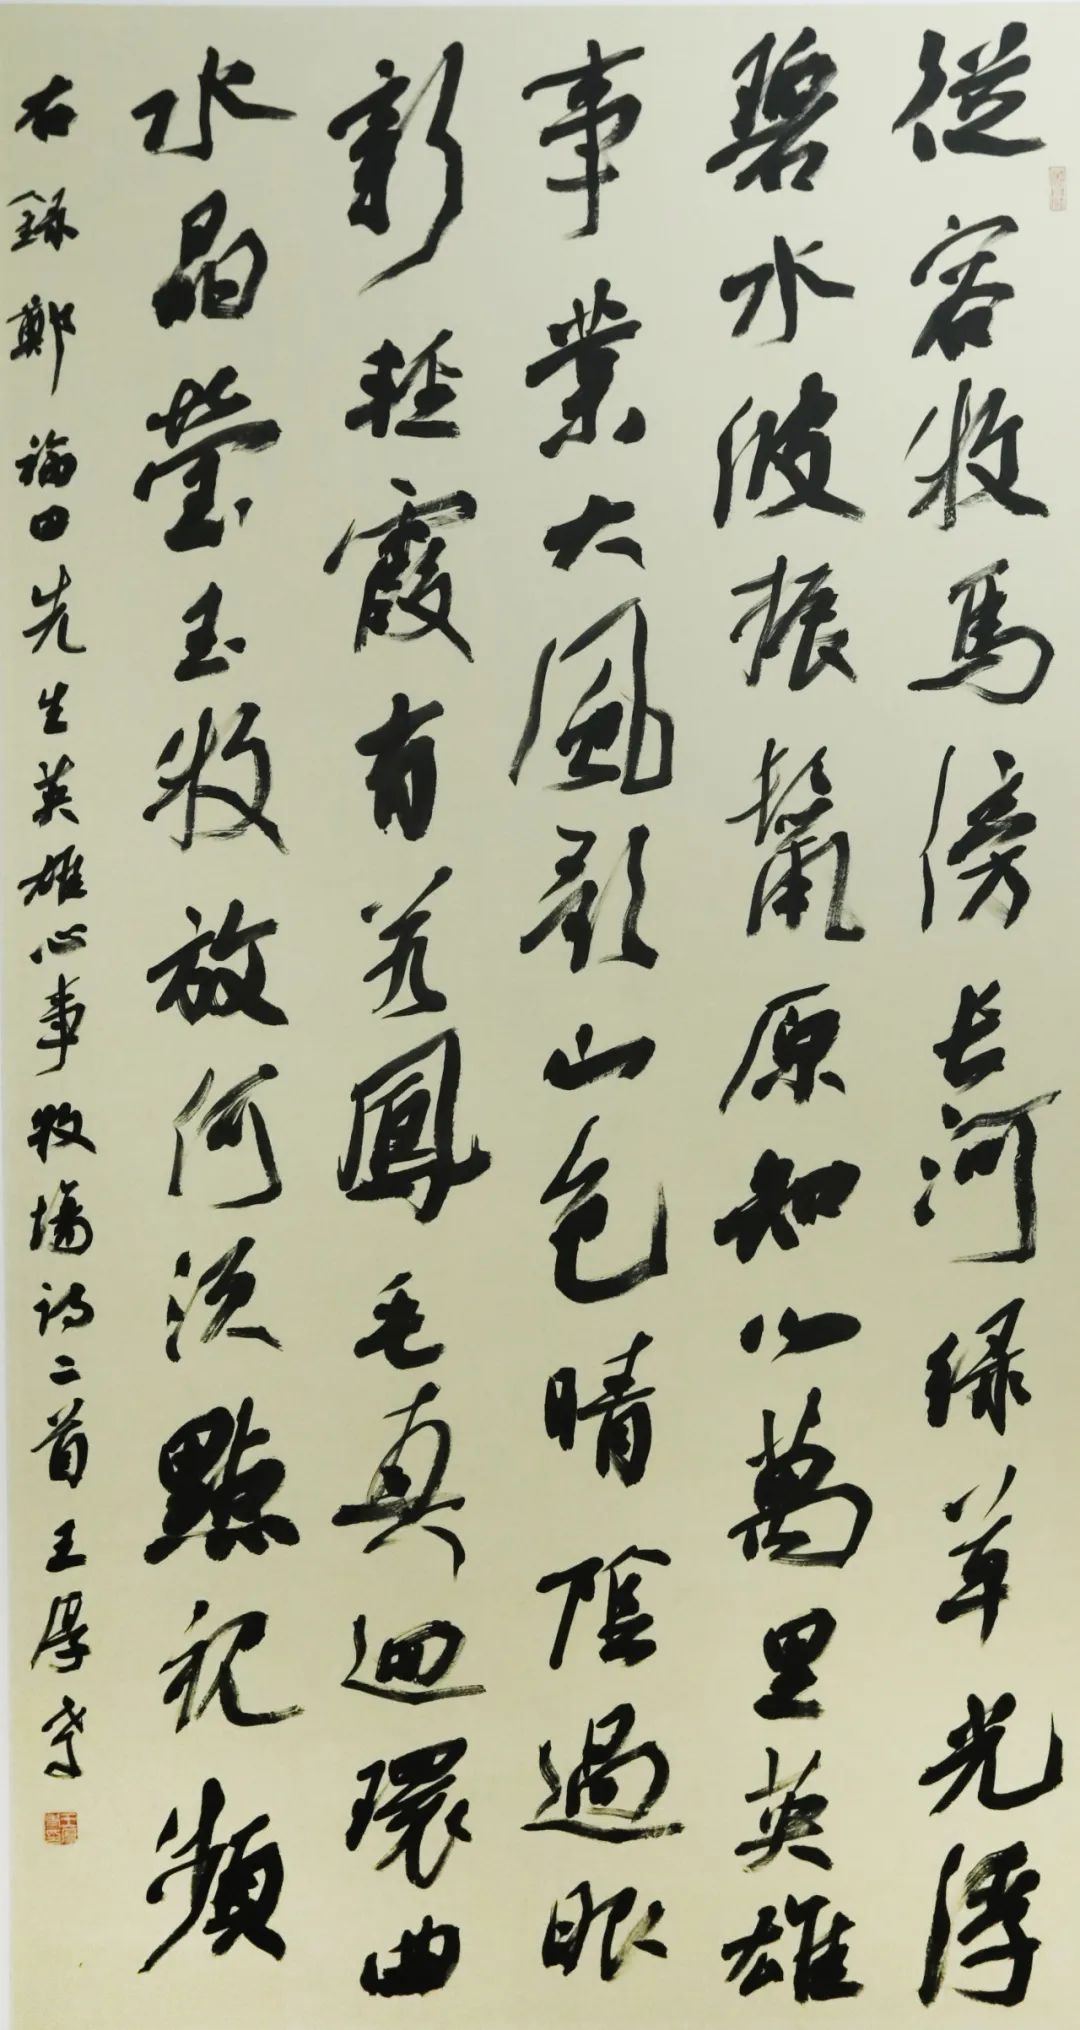 從容牧馬傍長河綠草光浮
碧水波振鬣原知心萬里英雄
事業大風歌山色晴陰過眼
新輕霞有若鳳毛真迴環曲
水晶瑩玉牧放何須點視頻
右錄鄭福田先生英雄心事牧場詩二首王厚